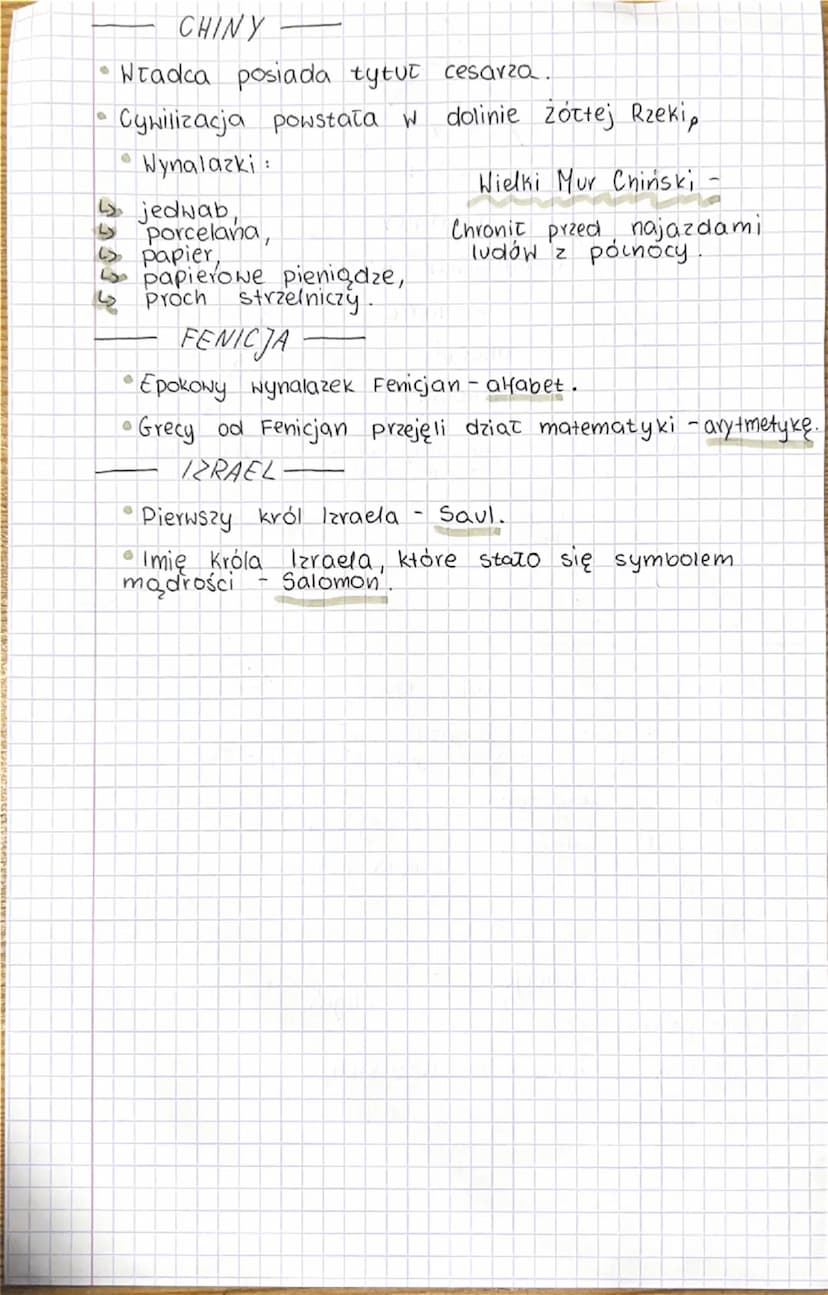 CHINY
• Władca posiada tytuł cesarza.
• Cywilizacja powstała w dolinie żółtej Rzeki,
• Wynalazki:
↳ jedwab,
↳ porcelana,
↳ papier,
↳ papierowe pieniądze,
↳ proch strzelniczy.
Wielki Mur Chiński -
Chronił przed najazdami
ludów z północy.
FENICJA
• Epokowy wynalazek Fenicjan - alfabet.
• Grecy od Fenicjan przejęli dział matematyki - arytmetykę.
IZRAEL
• Pierwszy król Izraela - Saul.
• Imię Króla Izraela, które stało się symbolem
mądrości - Salomon.